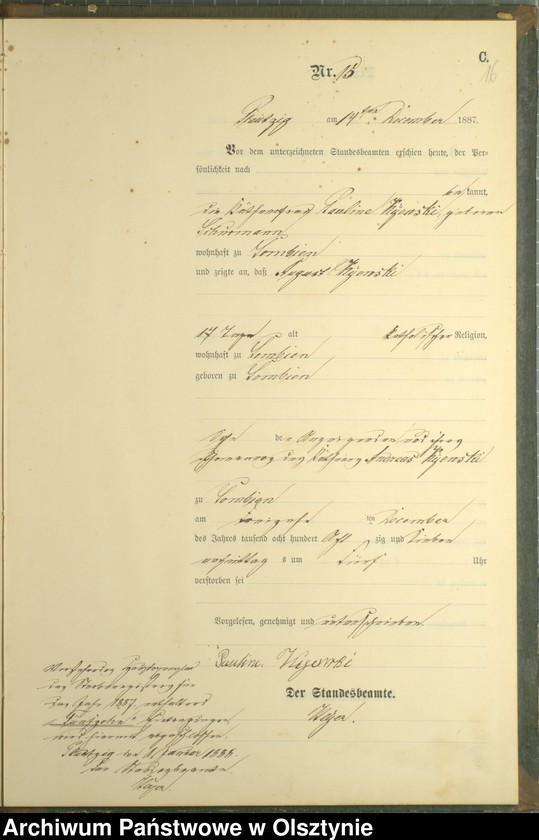 C.
16
Nr. 15
am 14ten December 1887.
Vor dem unterzeichneten Standesbeamten erschien heute, der Per-
sönlichkeit nach
be kannt,
die Käthnerfrau Pauline Kijewski, geboren
Schurmann
wohnhaft zu Lombien
und zeigte an, daß August Kijewski
17 Tage alt katholischer Religion,
wohnhaft zu Lombien
geboren zu Lombien
Sohn der Angezeigenden und ihres
Ehemannes des Käthners Andreas Kijewski
zu Lombien
am dreizehn ten December
des Jahres tausend acht hundert Acht zig und Sieben
nachmittag s um fünf Uhr
verstorben sei
Vorgelesen, genehmigt und unterschrieben.
Pauline Kijewski
Der Standesbeamte.
des Sterberegisters für
das Jahr 1887, enthaltend
Fünfzehn Eintragungen
wird hiermit abgeschlossen.
Januar 1888.
Der Standesbeamte.
Archiwum Państwowe w Olsztynie